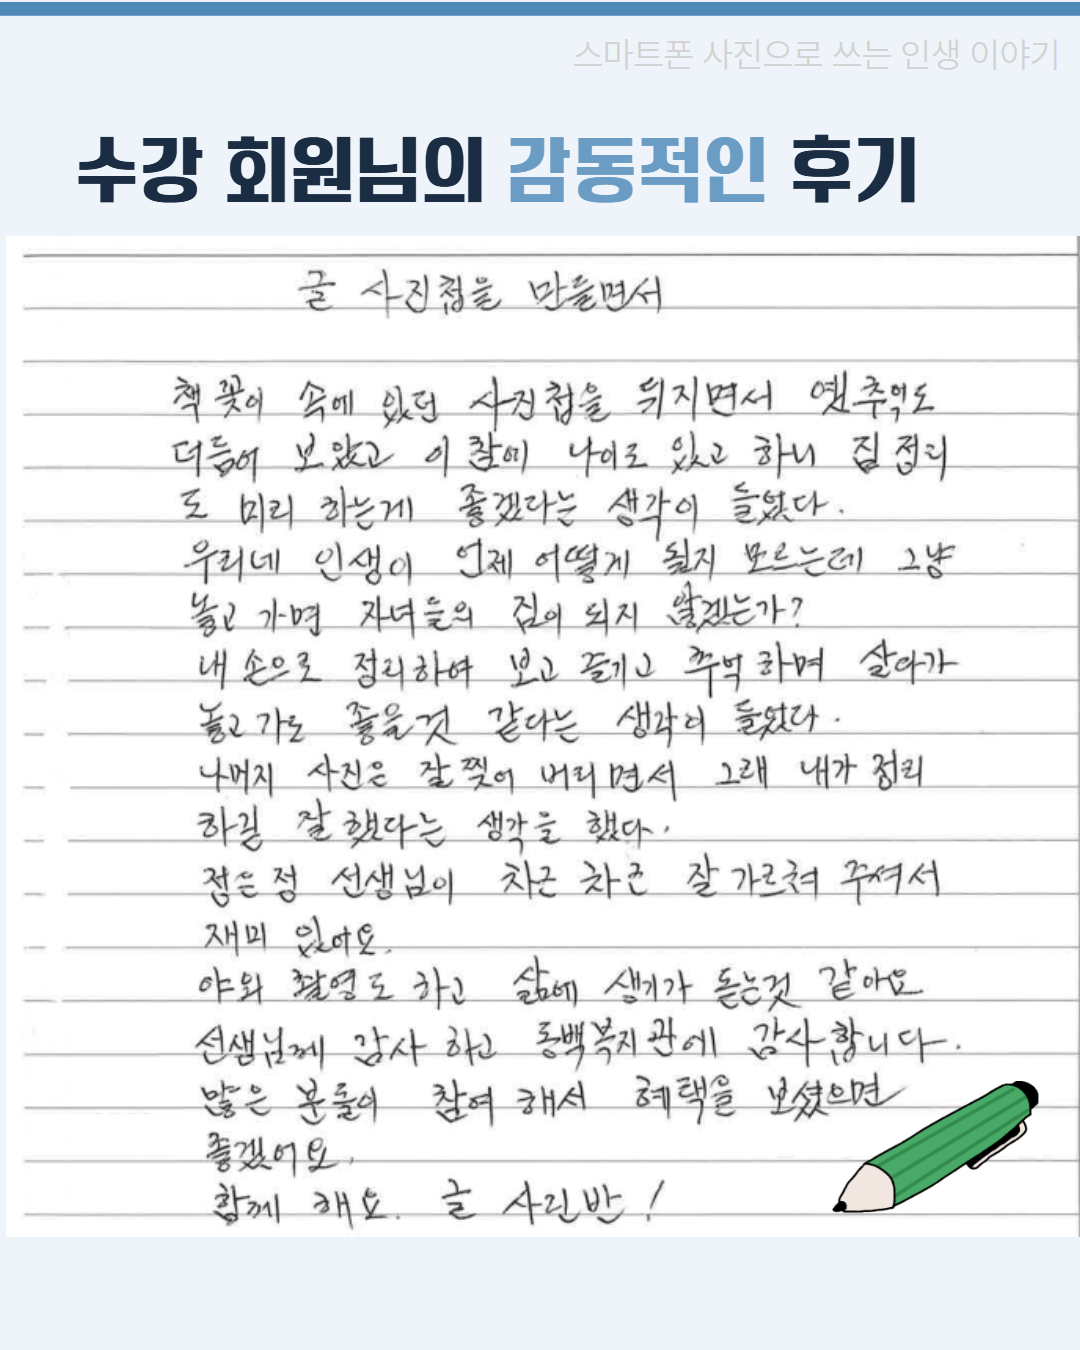 스마트폰 사진으로 쓰는 인생 이야기
수강 회원님의 감동적인 후기
글 사진첩을 만들면서
책 꽂이 속에 있던 사진첩을 뒤지면서 옛추억도
더듬어 보았고 이 참에 나이도 있고 하니 집 정리
도 미리 하는게 좋겠다는 생각이 들었다.
우리네 인생이 언제 어떻게 될지 모르는데 그냥
놓고 가면 자녀들의 짐이 되지 않겠는가?
내 손으로 정리하여 보고 즐기고 추억하며 살다가
놓고 가도 좋을것 같다는 생각이 들었다.
나머지 사진은 잘 찢어 버리면서 그래 내가 정리
하길 잘 했다는 생각을 했다.
정은정 선생님이 차근 차근 잘 가르쳐 주셔서
재미 있어요.
야외 촬영도 하고 삶에 생기가 돋는것 같아요
선생님께 감사 하고 동백복지관에 감사합니다.
많은 분들이 참여 해서 혜택을 보셨으면
좋겠어요.
함께 해요. 글 사진반!